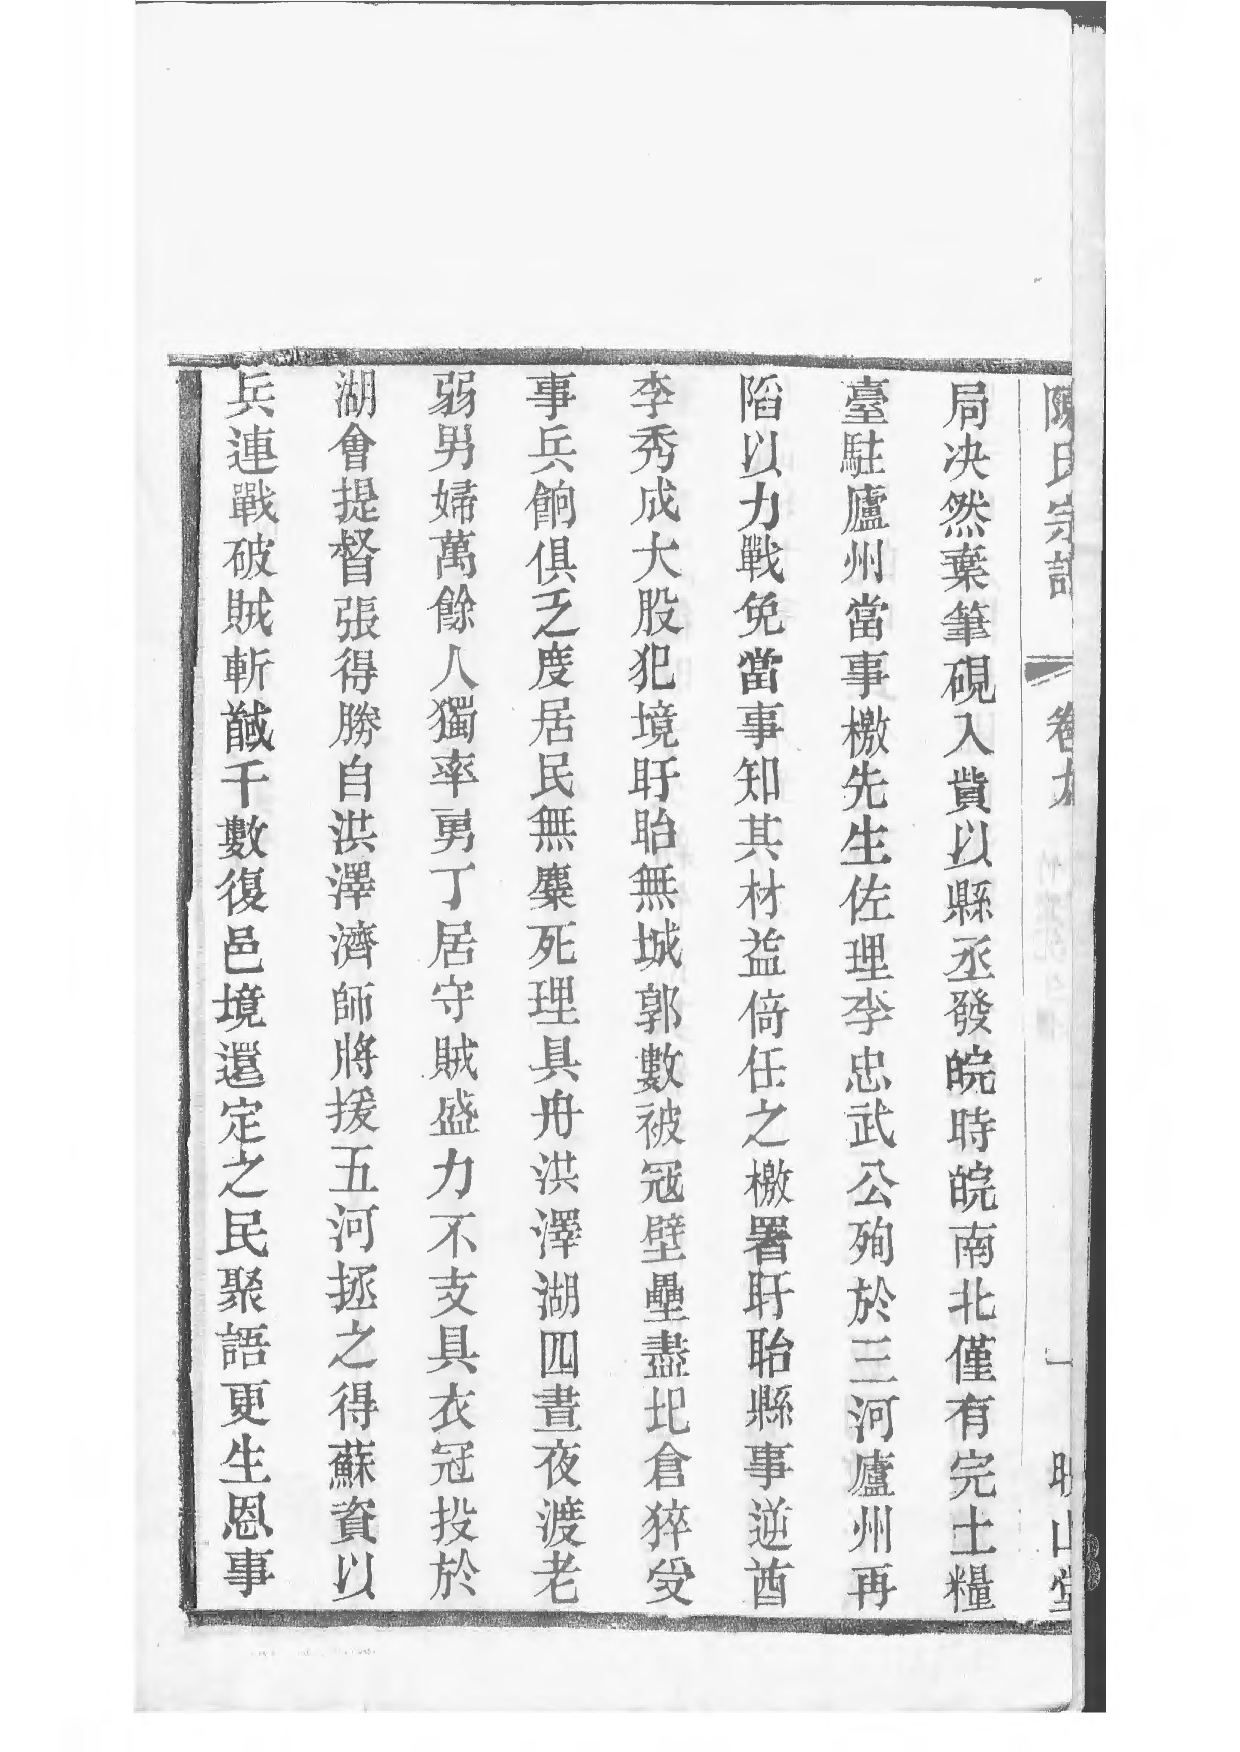 陳氏宗譜 卷九 一 映山堂
局决然棄筆硯入貲以縣丞發皖時皖南北僅有完土糧
臺駐廬州當事檄先生佐理李忠武公殉於三河廬州再
陷以力戰免當事知其材益倚任之檄署盱眙縣事逆酋
李秀成大股犯境盱眙無城郭數被冦壁壘盡圯倉猝受
事兵餉俱乏度居民無麋死理具舟洪澤湖四晝夜渡老
弱男婦萬餘人獨率勇丁居守賊盛力不支具衣冠投於
湖會提督張得勝自洪澤濟師將援五河拯之得蘇資以
兵連戰破賊斬馘千數復邑境還定之民聚語更生恩事